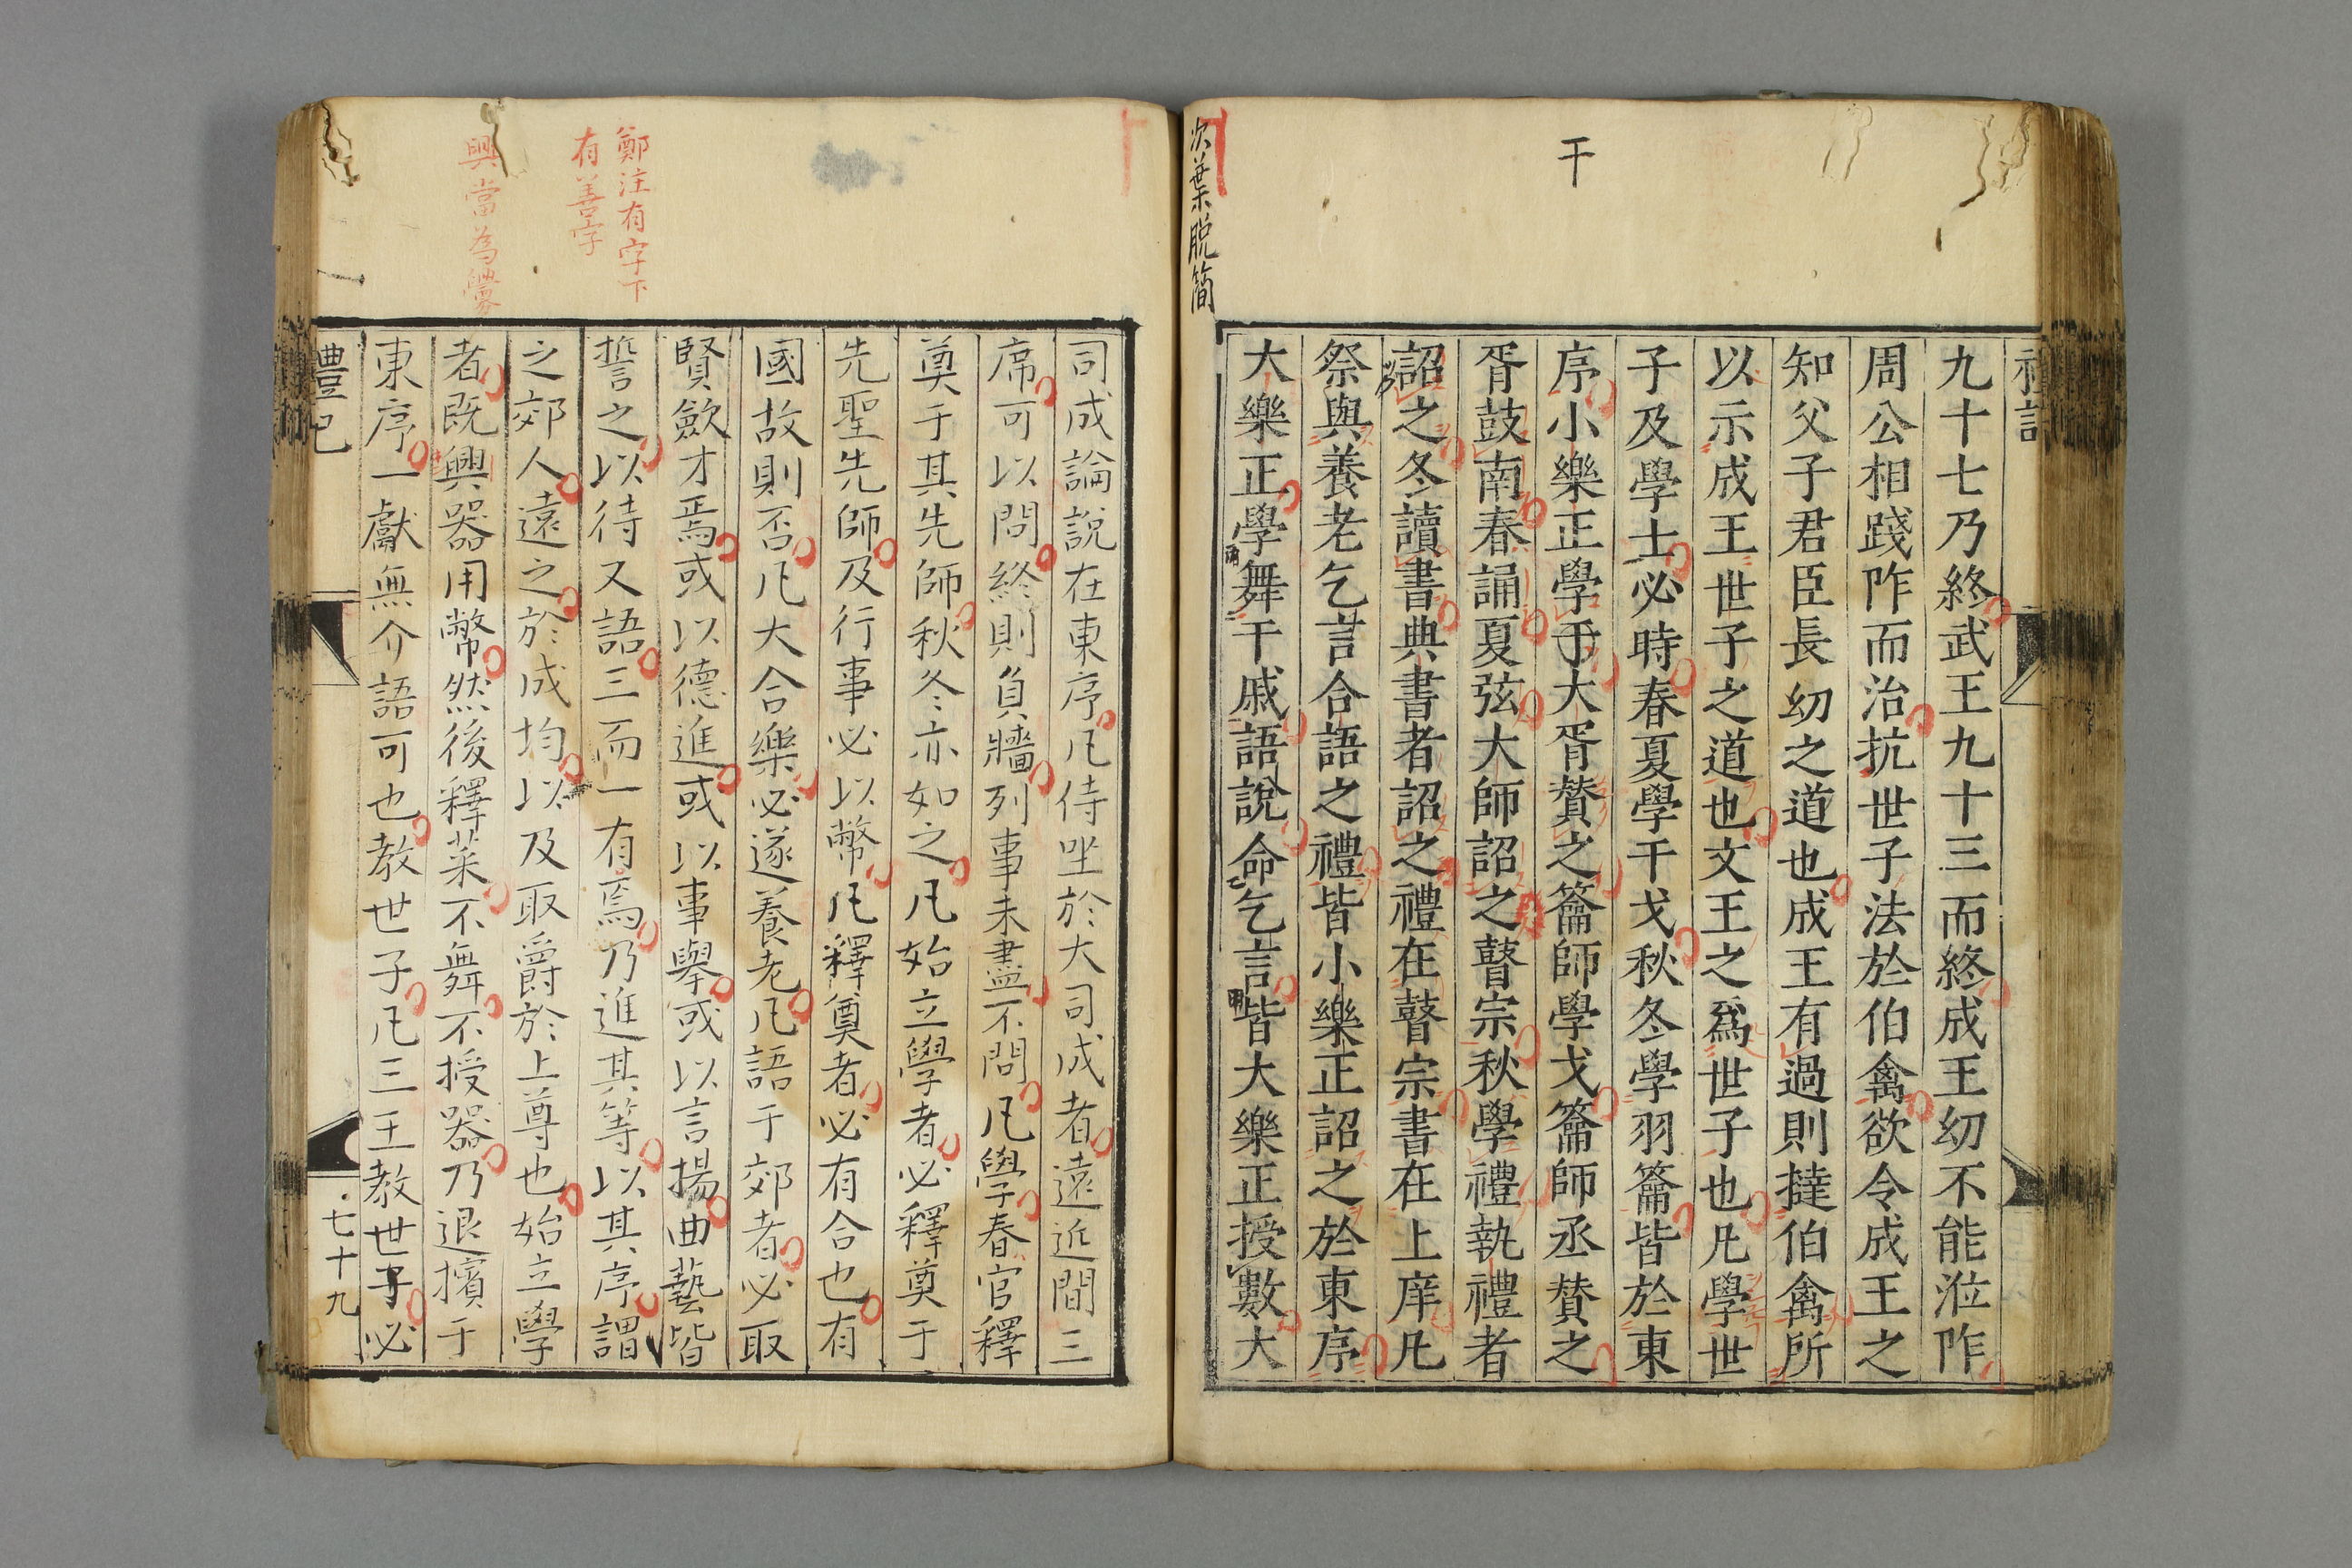 干
次葉脱簡
禮記
九十七乃終武王九十三而終成王幼不能涖阼
周公相踐阼而治抗世子法於伯禽欲令成王之
知父子君臣長幼之道也成王有過則撻伯禽所
以示成王世子之道也文王之爲世子也凡學世
子及學士必時春夏學干戈秋冬學羽籥皆於東
序小樂正學于大胥贊之籥師學戈籥師丞贊之
胥鼓南春誦夏弦大師詔之瞽宗秋學禮執禮者
詔之冬讀書典書者詔之禮在瞽宗書在上庠凡
祭與養老乞言合語之禮皆小樂正詔之於東序
大樂正學舞干戚語說命乞言皆大樂正授數大
鄭注有字下
有善字
興當為釁
司成論說在東序凡侍坐於大司成者遠近間三
席可以問終則負牆列事未盡不問凡學春官釋
奠于其先師秋冬亦如之凡始立學者必釋奠于
先聖先師及行事必以幣凡釋奠者必有合也有
國故則否凡大合樂必遂養老凡語于郊者必取
賢斂才焉或以德進或以事舉或以言揚曲藝皆
誓之以待又語三而一有焉乃進其等以其序謂
之郊人遠之於成均以及取爵於上尊也始立學
者既興器用幣然後釋菜不舞不授器乃退儐于
東序一獻無介語可也教世子凡三王教世子必
禮記
七十九